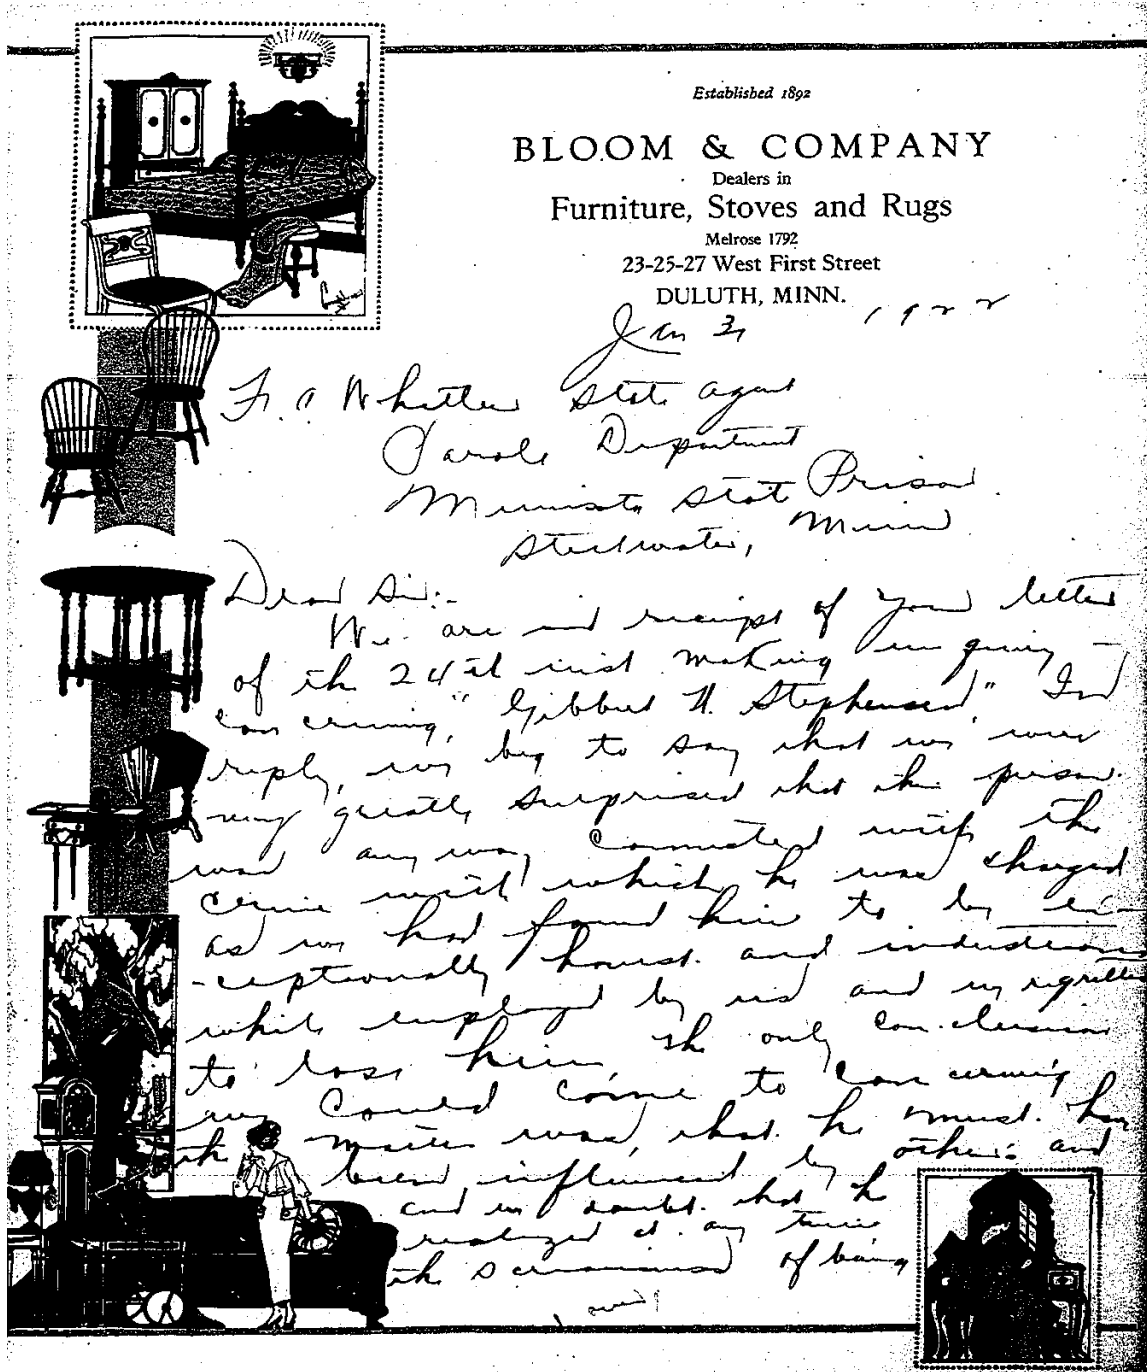 Established 1892
BLOOM & COMPANY
Dealers in
Furniture, Stoves and Rugs
Melrose 1792
23-25-27 West First Street
DULUTH, MINN.
Jan 3, 1922
F. A Whittier State Agent
Parole Department
Minnesota State Prison
Stillwater, Minn
Dear Sir:-
We are in receipt of your letter
of the 24th inst making inquiry -
concerning, "Gibbert H. Stephenson," In
reply, we beg to say that we were
very greatly surprised that the person
was any way connected with the
crime with which he was charged
as we had found him to be ex-
-ceptionally honest and industrious
while employed by us and we regretted
to lose him, the only conclusion
we could come to concerning
the matter was, that he must have
been influenced by others and
and we doubt that he
realized at any time
the seriousness of being